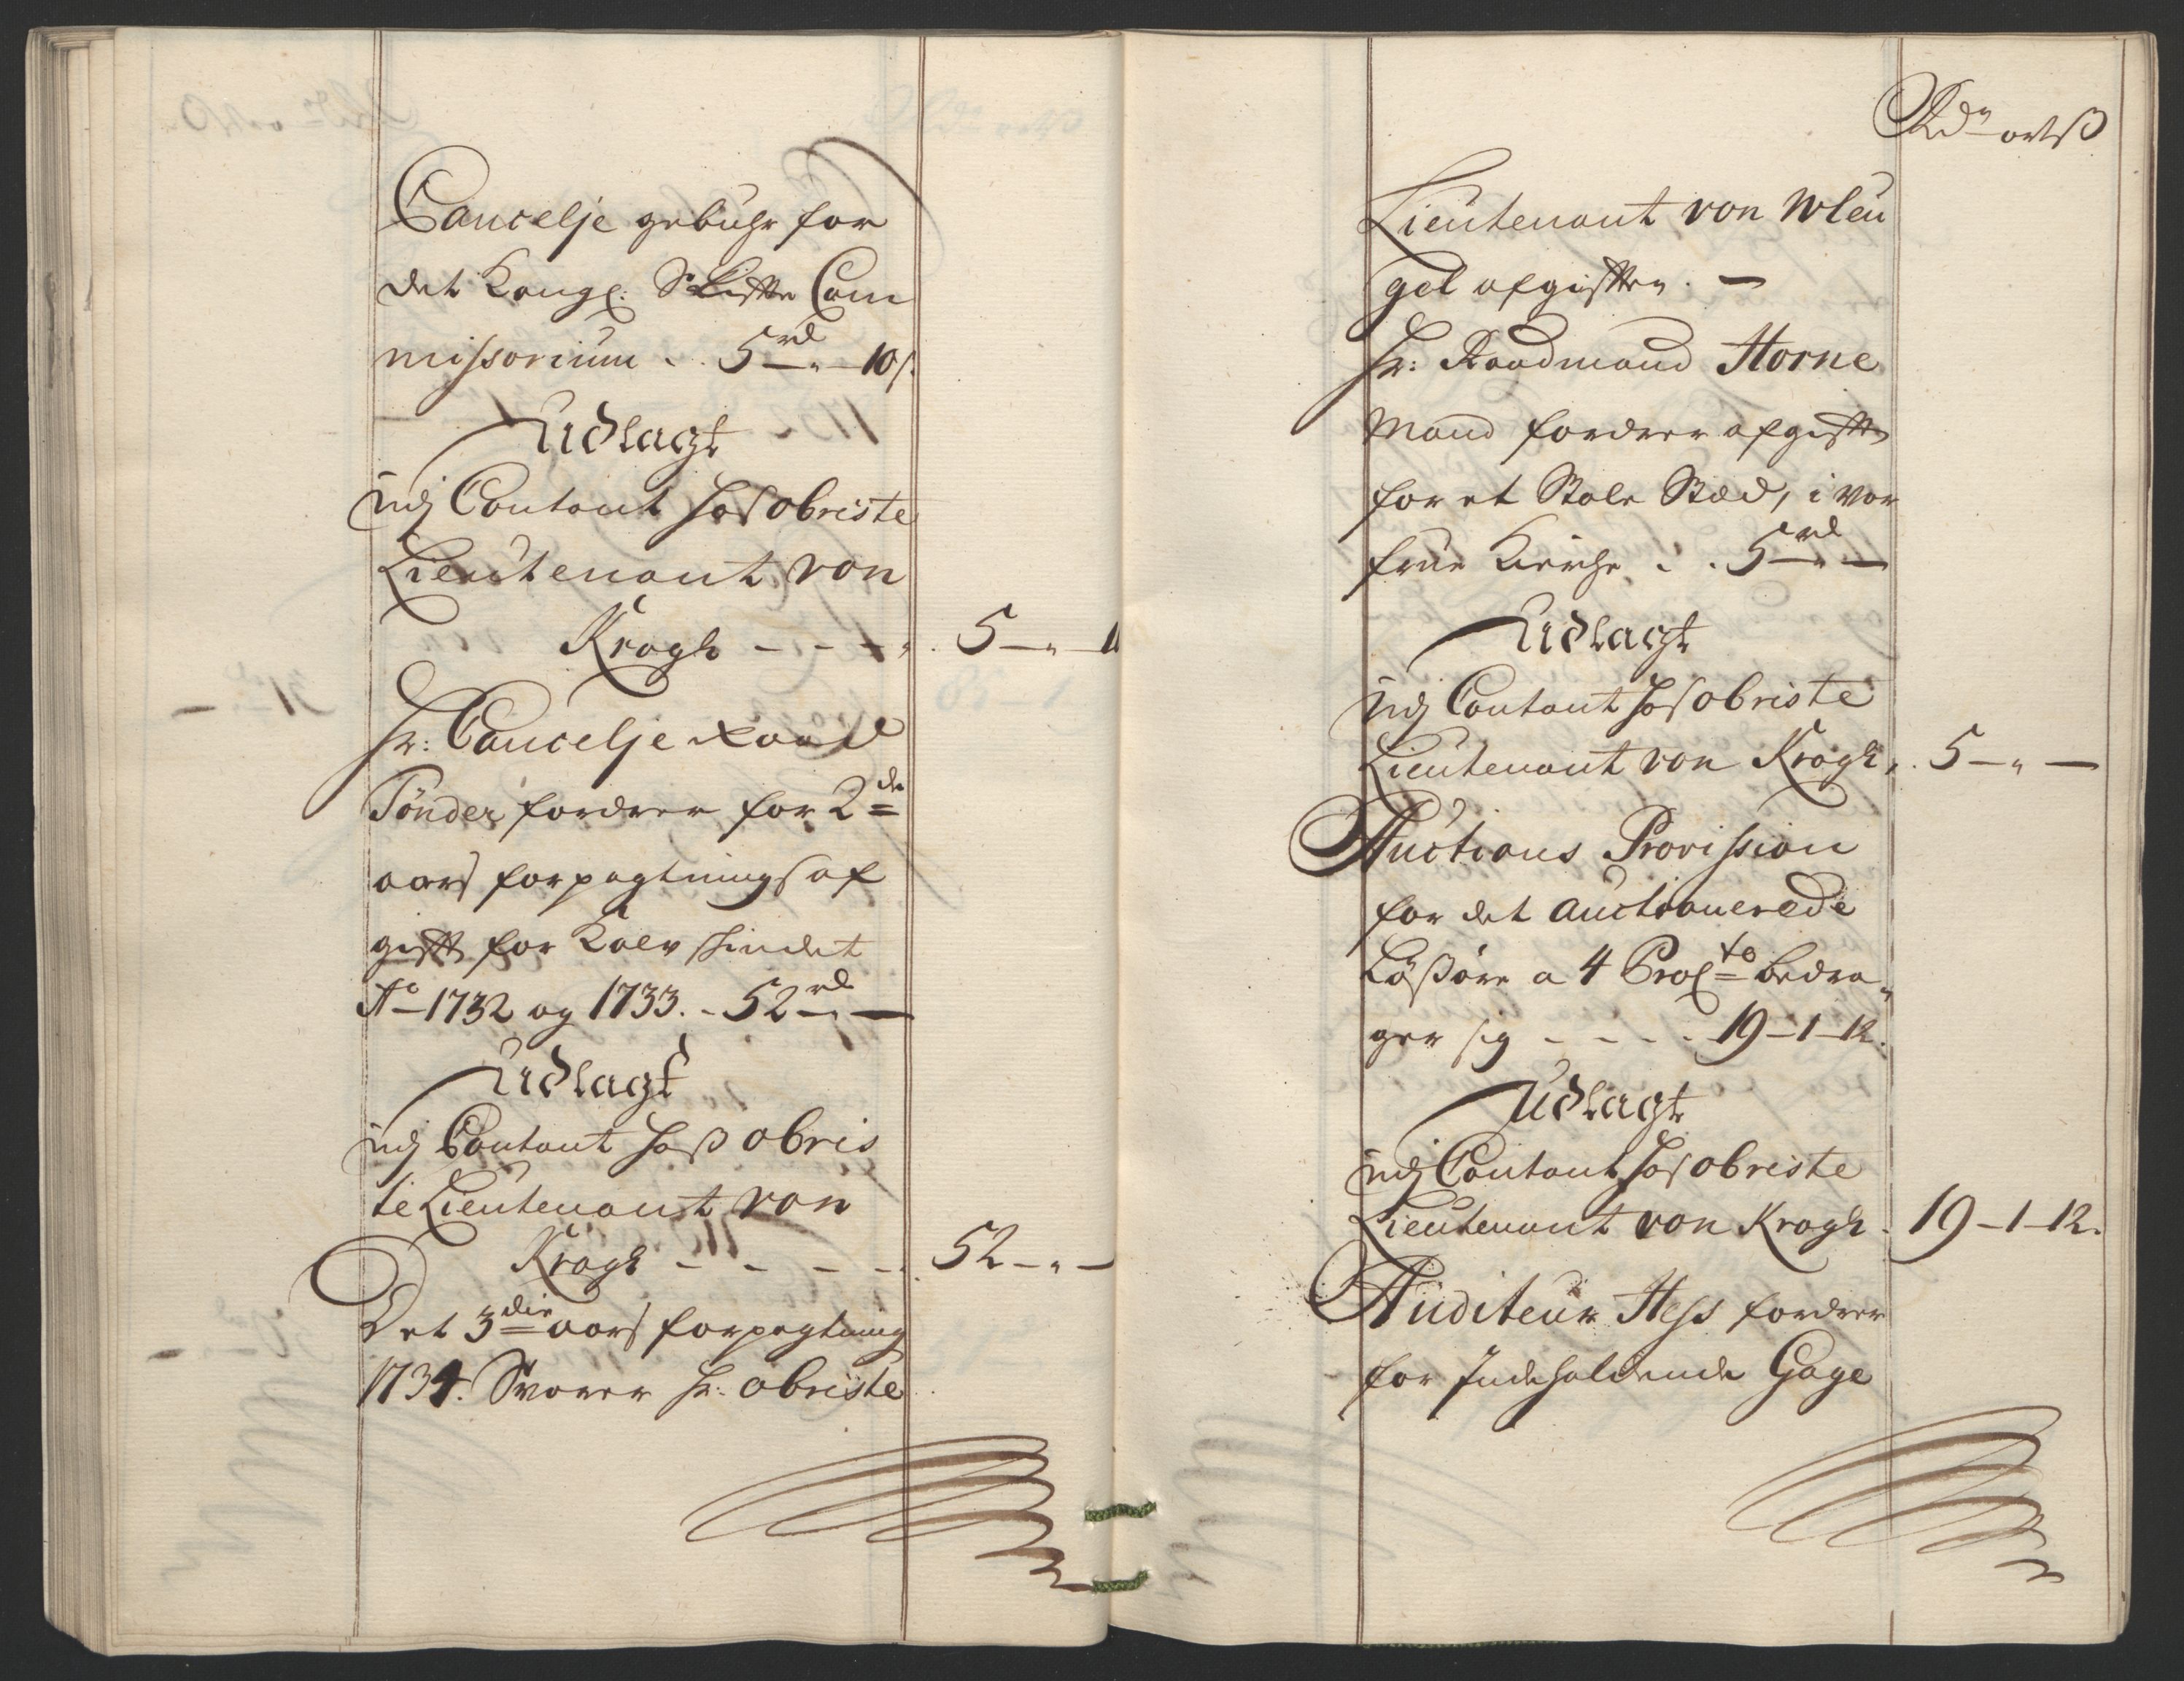 Cancelje gebuhr for
det Kongl: Skifte Com
missorium . . 5 rd „ 10 s.
Udlagt
udj Contant hos obriste
Lieutenant von
Krogh - - - - 5 — „ — 1
Hr: Cancelje Raad
Tönder fordrer for 2de
aars forpagtnings af
gift for Kalv skindet
Ao 1732 og 1733. - 52 rd „ —
Udlagt
udj Contant hoß obris
te Lieutenant von
Krogh - - - - 52 — „ —
Det 3die aars forpagtning
1734. Svarer Hr: obriste
Rdr ort ß
Lieutenant von Wleu
gel afgiften. —
Hr: Raadmand Horne
mand fordrer afgift
for et Stole Stæd, i vor
frue Kirche . . 5 rd „ —
Udlagt
udj Contant hos obriste
Lieutenant von Krogh, . 5 — „ —
Auctions Provission
for det Auctionerede
Lößöre a 4 Procto bedra„
ger sig - - - - 19 — 1 — 12.
Udlagt
udj Contant hos obriste
Lieutenant von Krogh . 19 — 1 — 12.
Auditeur Hess fordrer
for Indeholdende Gage